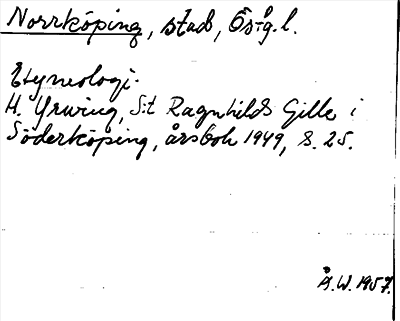 Norrköping, stad, Ös-g.l.
Etymologi.
H. Yrwing, S:t Ragnhilds Gille i
Söderköping, årsbok 1949, s. 25.
Å.W. 1957.